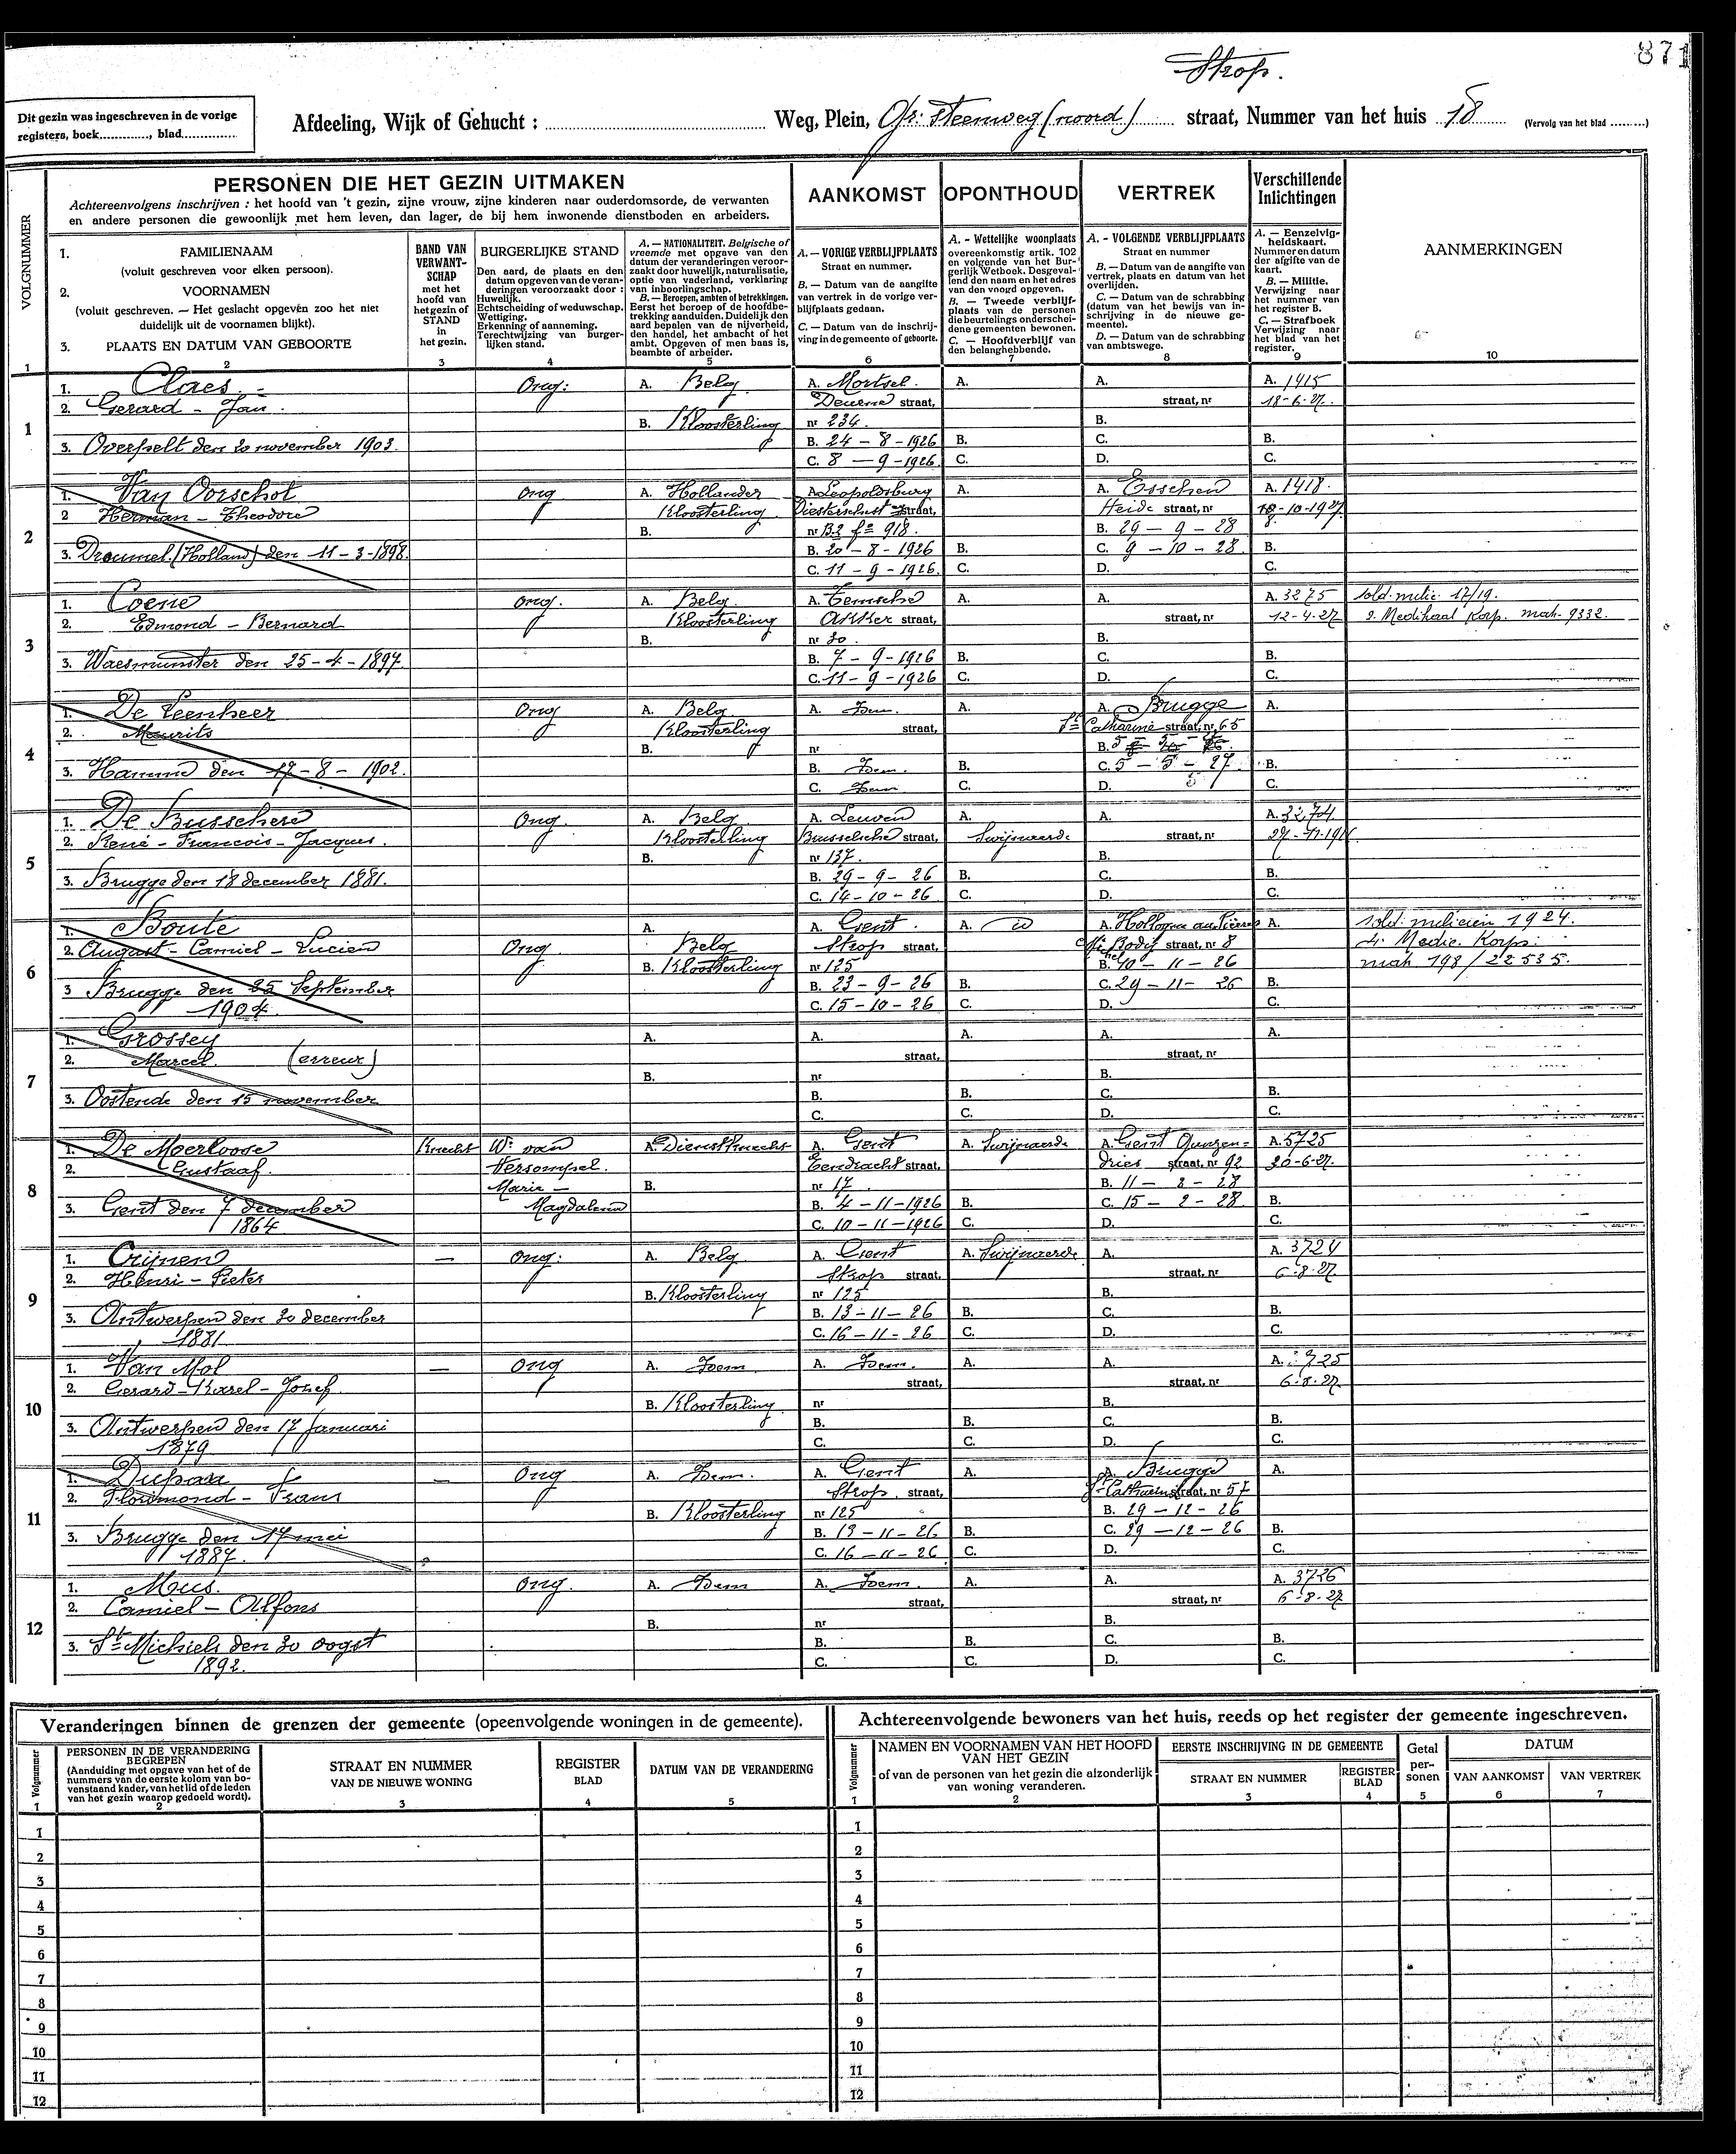 871
Strop.
Dit gezin was ingeschreven in de vorige
registers, boek............, blad...............
Afdeeling, Wijk of Gehucht : ........ Weg, Plein, Gr: Steenweg (noord) straat, Nummer van het huis 18 (Vervolg van het blad .........)
VOLGNUMMER
PERSONEN DIE HET GEZIN UITMAKEN
Achtereenvolgens inschrijven : het hoofd van 't gezin, zijne vrouw, zijne kinderen naar ouderdomsorde, de verwanten
en andere personen die gewoonlijk met hem leven, dan lager, de bij hem inwonende dienstboden en arbeiders.
AANKOMST
OPONTHOUD
VERTREK
Verschillende
Inlichtingen
AANMERKINGEN
1. FAMILIENAAM
(voluit geschreven voor elken persoon).
2. VOORNAMEN
(voluit geschreven. — Het geslacht opgeven zoo het niet
duidelijk uit de voornamen blijkt).
3. PLAATS EN DATUM VAN GEBOORTE
BAND VAN
VERWANT-
SCHAP
met het
hoofd van
het gezin of
STAND
in
het gezin.
BURGERLIJKE STAND
Den aard, de plaats en den
datum opgeven van de veran-
deringen veroorzaakt door :
Huwelijk.
Echtscheiding of weduwschap.
Wettiging.
Erkenning of aanneming.
Terechtwijzing van burger-
lijken stand.
A. — NATIONALITEIT. Belgische of
vreemde met opgave van den
datum der veranderingen veroor-
zaakt door huwelijk, naturalisatie,
optie van vaderland, verklaring
van inboorlingschap.
B. — Beroepen, ambten of betrekkingen.
Eerst het beroep of de hoofdbe-
trekking aanduiden. Duidelijk den
aard bepalen van de nijverheid,
den handel, het ambacht of het
ambt. Opgeven of men baas is,
beambte of arbeider.
A. — VORIGE VERBLIJFPLAATS
Straat en nummer.
B. — Datum van de aangifte
van vertrek in de vorige ver-
blijfplaats gedaan.
C. — Datum van de inschrij-
ving in de gemeente of geboorte.
A. - Wettelijke woonplaats
overeenkomstig artik. 102
en volgende van het Bur-
gerlijk Wetboek. Desgeval-
lend den naam en het adres
van den voogd opgeven.
B. — Tweede verblijf-
plaats van de personen
die beurtelings onderschei-
dene gemeenten bewonen.
C. — Hoofdverblijf van
den belanghebbende.
A. - VOLGENDE VERBLIJFPLAATS
Straat en nummer
B. — Datum van de aangifte van
vertrek, plaats en datum van het
overlijden.
C. — Datum van de schrabbing
(datum van het bewijs van in-
schrijving in de nieuwe ge-
meente).
D. — Datum van de schrabbing
van ambtswege.
A. — Eenzelvig-
heidskaart.
Nummer en datum
der afgifte van de
kaart.
B. — Militie.
Verwijzing naar
het nummer van
het register B.
C. — Strafboek
Verwijzing naar
het blad van het
register.
1 2 3 4 5 6 7 8 9 10
1
1. Claes. Ong: A. Belg A. Mortsel. A. A. A. 1415
2. Gerard - Jan. Deurne straat, straat, nr 18-6-27.
B. Kloosterling nr 234. B.
3. Overpelt den 20 november 1903. B. 24 - 8 - 1926 B. C. B.
C. 8 - 9 - 1926. C. D. C.
2
1. Van Oorschot Ong A. Hollander A. Leopoldsburg A. A. Esschen A. 1418.
2 Herman - Theodore Kloosterling straat, Heide straat, nr 18-10-1927.
B. nr B2 fo 918. B. 29 - 9 - 28
3. Dreumel (Holland) den 11-3-1898. B. 20 - 8 - 1926 B. C. 9 - 10 - 28. B.
C. 11 - 9 - 1926. C. D. C.
3
1. Coene ong. A. Belg. A. Temsche A. A. A. 3275 sold. milic. 17/19.
2. Edmond - Bernard Kloosterling Akker straat, straat, nr 12-4-27 2. Medikaal Korp. mat. 9332.
B. nr 30. B.
3. Waesmunster den 25-4-1897. B. 7 - 9 - 1926 B. C. B.
C. 11 - 9 - 1926 C. D. C.
4
1. De Leenheer Ong A. Belg A. Idem. A. A. Brugge A.
2. Maurits Kloosterling straat, St Catharine straat, nr 65
B. nr B. 5
3. Hamme den 17-8-1902. B. Idem. B. C. 5 - 5 - 27. B.
C. Idem C. D. C.
5
1. De Busschere Ong. A. Belg A. Leuven A. A. A. 3274
2. René - Francois - Jacques. Kloosterling Brusselsche straat, Swijnaerde straat, nr
B. nr 137. B.
3. Brugge den 18 december 1881. B. 29 - 9 - 26 B. C. B.
C. 14 - 10 - 26 C. D. C.
6
1. Boute A. A. Gent. A. A. Hollogne aux Pierres A. sold. milicien 1924.
2. August - Camiel - Lucien Ong Belg Strop straat, straat, nr 8 4. Medic. Korps:
B. Kloosterling nr 125 B. 10 - 11 - 26 mat. 198/22535.
3 Brugge den 25 September B. 23 - 9 - 26 B. C. 29 - 11 - 26 B.
1904. C. 15 - 10 - 26 C. D. C.
7
1. Grossey A. A. A. A. A.
2. Marcel. (erreur) straat, straat, nr
B. nr B.
3. Oostende den 15 november B. B. C. B.
C. C. D. C.
8
1. De Moerloose Knecht Wr van A. Dienstknecht A. Gent A. Swijnaerde A. Gent Ganzen= A. 5725
2. Gustaaf. Versompel. Eendracht straat, dries straat, nr 92 20-6-27.
Marie - B. nr 17. B. 11 - 2 - 28
3. Gent den 7 december Magdalena B. 4 - 11 - 1926 B. C. 15 - 2 - 28. B.
1864 C. 10 - 11 - 1926 C. D. C.
9
1. Crijnen — Ong: A. Belg A. Gent A. Swijnaerde A. A. 3724
2. Henri - Pieter Strop straat, straat, nr 6-8-27.
B. Kloosterling nr 125 B.
3. Antwerpen den 30 december B. 13 - 11 - 26 B. C. B.
1881. C. 16 - 11 - 26 C. D. C.
10
1. Van Mol — Ong A. Idem A. Idem. A. A. A. 3725
2. Gerard - Karel - Jozef. straat, straat, nr 6-8-27
B. Kloosterling. nr B.
3. Antwerpen den 17 Januari B. B. C. B.
1879 C. C. D. C.
11
1. Dupan — Ong A. Idem. A. Gent A. A. Brugge A.
2. Florimond - Frans Strop. straat, St Catharina straat, nr 57
B. Kloosterling nr 125 B. 29 - 12 - 26
3. Brugge den 17 mei B. 13 - 11 - 26 B. C. 29 - 12 - 26 B.
1887. C. 16 - 11 - 26 C. D. C.
12
1. Mus. Ong. A. Idem A. Idem. A. A. A. 3726
2. Camiel - Alfons straat, straat, nr 6-8-27
B. nr B.
3. St Michiels den 30 oogst B. B. C. B.
1892. C. C. D. C.
Veranderingen binnen de grenzen der gemeente (opeenvolgende woningen in de gemeente).
Volgnummer
PERSONEN IN DE VERANDERING
BEGREPEN
(Aanduiding met opgave van het of de
nummers van de eerste kolom van bo-
venstaand kader, van het lid of de leden
van het gezin waarop gedoeld wordt).
STRAAT EN NUMMER
VAN DE NIEUWE WONING
REGISTER
BLAD
DATUM VAN DE VERANDERING
1 2 3 4 5
1
2
3
4
5
6
7
8
9
10
11
12
Achtereenvolgende bewoners van het huis, reeds op het register der gemeente ingeschreven.
Volgnummer
NAMEN EN VOORNAMEN VAN HET HOOFD
VAN HET GEZIN
of van de personen van het gezin die afzonderlijk
van woning veranderen.
EERSTE INSCHRIJVING IN DE GEMEENTE
STRAAT EN NUMMER
REGISTER
BLAD
Getal
per-
sonen
DATUM
VAN AANKOMST
VAN VERTREK
1 2 3 4 5 6 7
1
2
3
4
5
6
7
8
9
10
11
12